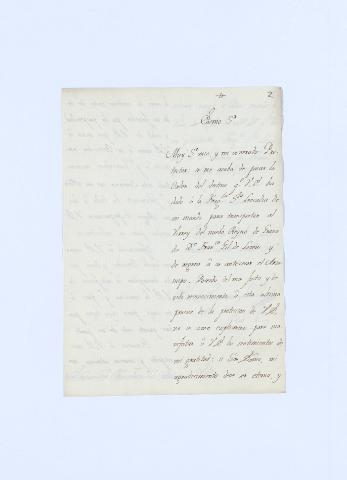 2
Exmo. Sr.
Muy Sr. mio, y mi venerado Pro-
tector: se me acaba de pasar la
noticia del destino q.e V.E. ha
dado à la Frag.ta Sta. Leocadia de
mi mando para transportar al
Virrey del nuevo Reyno de Grana-
da Dn. Fran.co Gil de Lemos y
de regreso à su antecesor el Arzo-
bispo.
reconocimiento à esta ultima
prueba de la proteccion de V.E.
no se como explicarme para ma-
nifestar à V.E. los sentimientos de
mi gratitud: mi
agradecimiento sera eterno, y